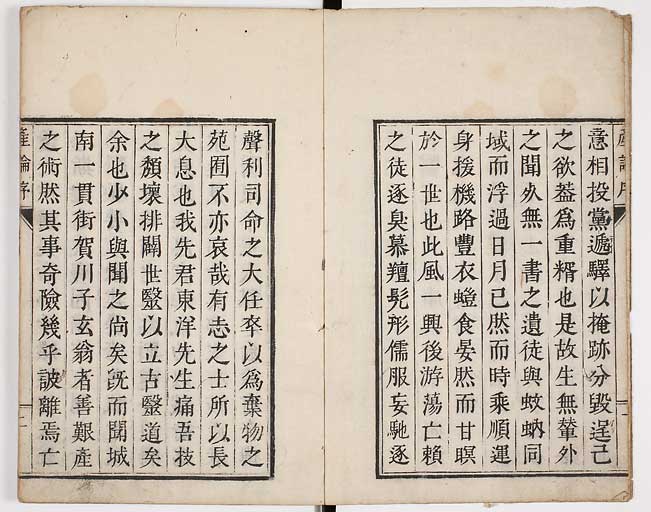 意相投黨遞驛以掩跡分毀逞己
之欲葢為重糈也是故生無輦外
之聞死無一書之遺徒與蚊蚋同
域而浮過日月已然而時乘順運
身援機路豐衣螘食晏然而甘瞑
於一世也此風一興後游蕩亡賴
之徒逐臭慕羶髡形儒服妄馳逐
聲利司命之大任卒以為棄物之
苑囿不亦哀哉有志之士所以長
大息也我先君東洋先生痛吾技
之頹壞排闢世毉以立古毉道矣
余也少小與聞之尚矣旣而聞城
南一貫街賀川子玄翁者善艱產
之術然其事奇險幾乎詖離焉亡
產論序